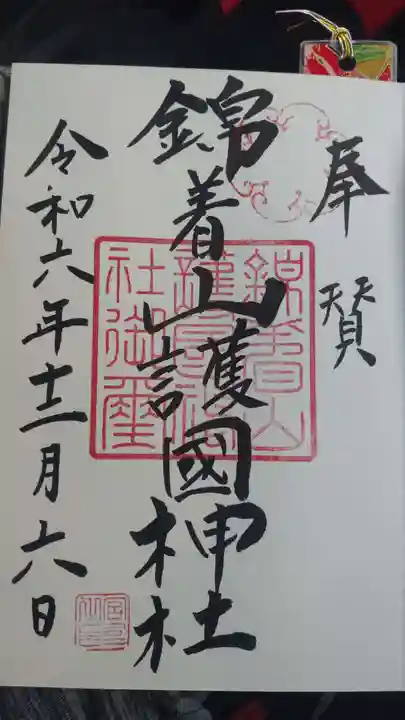 奉賛
錦着山護國神社
錦着山
護國神
社御璽
令和六年十二月六日